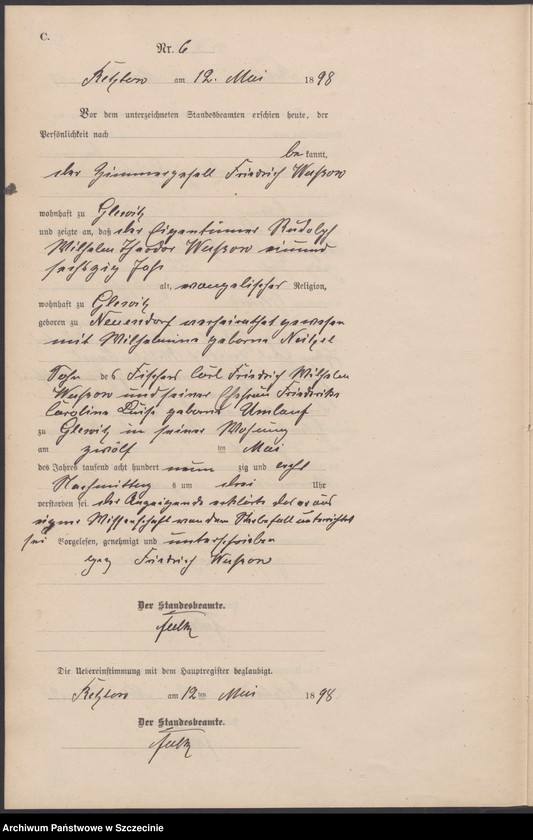 C.
Nr. 6
am 12. Mai 1898
Vor dem unterzeichneten Standesbeamten erschien heute, der
Persönlichkeit nach
bekannt,
der Zimmergesell Friedrich Wussow
wohnhaft zu Glewitz
und zeigte an, daß der Eigentümer Rudolph
Wilhelm Theodor Wussow einund
sechszig Jahr
alt, evangelischer Religion,
wohnhaft zu Glewitz
geboren zu Neuendorf verheirathet gewesen
mit Wilhelmine geborne Neitzel
Sohn des Fischers Carl Friedrich Wilhelm
Wussow und seiner Ehefrau Friederike
Caroline Luise geborne Umlauf
zu Glewitz in seiner Wohnung
am zwölf ten Mai
des Jahres tausend acht hundert neun zig und acht
Nachmittag s um drei Uhr
verstorben sei. der Anzeigende erklärte das er aus
eigner Wissenschaft von dem Sterbefall unterrichtet
sei Vorgelesen, genehmigt und unterschrieben
gez Friedrich Wussow
Der Standesbeamte.
Die Uebereinstimmung mit dem Hauptregister beglaubigt.
am 12 ten Mai 1898
Der Standesbeamte.
Archiwum Państwowe w Szczecinie